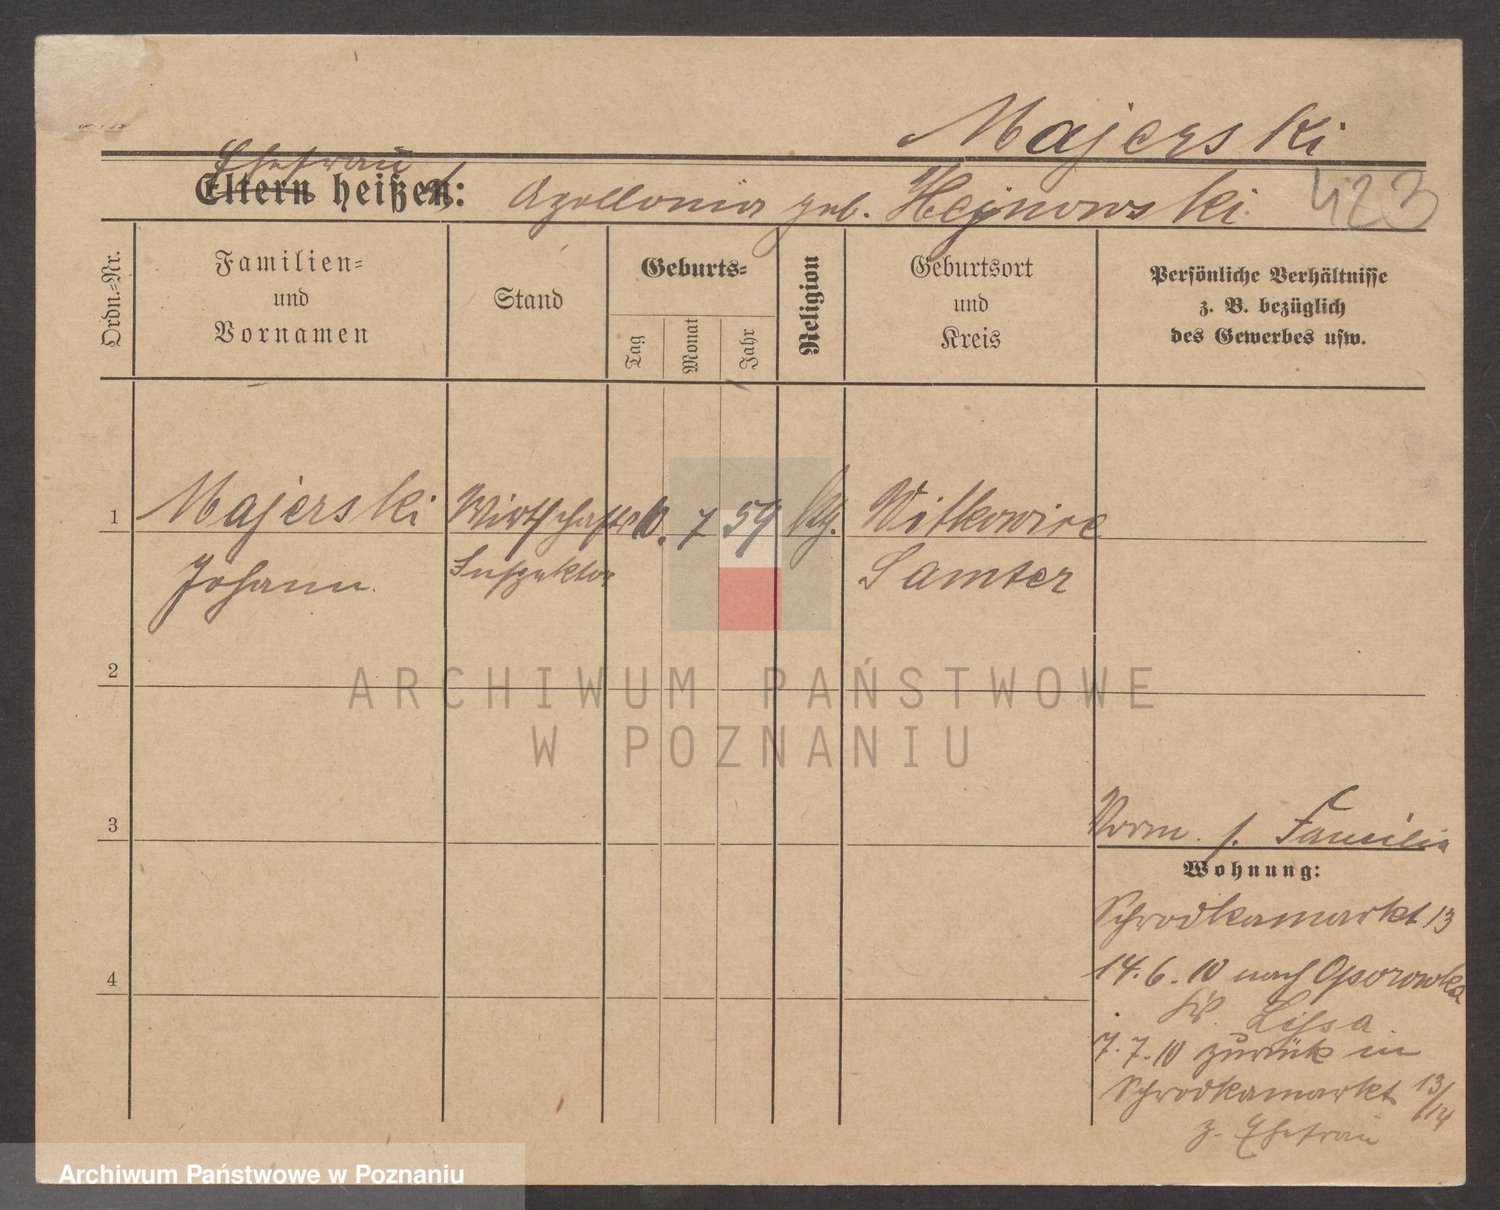 Majerski
Ehefrau
Eltern heißen: Apollonia geb. Hejnowski 423
Ordn.-Nr.
Familien-
und
Vornamen
Stand
Geburts-
Tag
Monat
Jahr
Religion
Geburtsort
und
Kreis
Persönliche Verhältnisse
z. B. bezüglich
des Gewerbes usw.
1 Majerski Wirtschafts 10. 7 59 kth. Witkowice
Johann. Inspektor Samter
2
ARCHIWUM PAŃSTWOWE
W POZNANIU
3
Vorm. s. Familie
Wohnung:
Schrodkamarkt 13
4
14. 6. 10 nach Oporowko
Kr. Lissa.
7. 7. 10 zurück in
Schrodkamarkt 13/14
z. Ehefrau
Archiwum Państwowe w Poznaniu